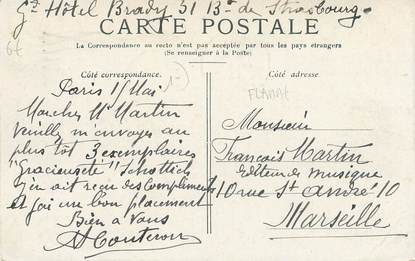 Gd Hôtel Brady 31 Bd de Strasbourg
CARTE POSTALE
La Correspondance au recto n'est pas acceptée par tous les pays étrangers
(Se renseigner à la Poste)
Côté correspondance.
Paris 1/ Mai
Mr Martin
Veuilly m'envoyer au
plus tot 3 exemplaires
"Gracieusetè" Schottich
j'en ait reçu des Compliments
et j'ai un bon placement
Bien à Vous
Côté adresse
Monsieur
François Martin
Editeur de musique
10 rue St André 10
Marseille